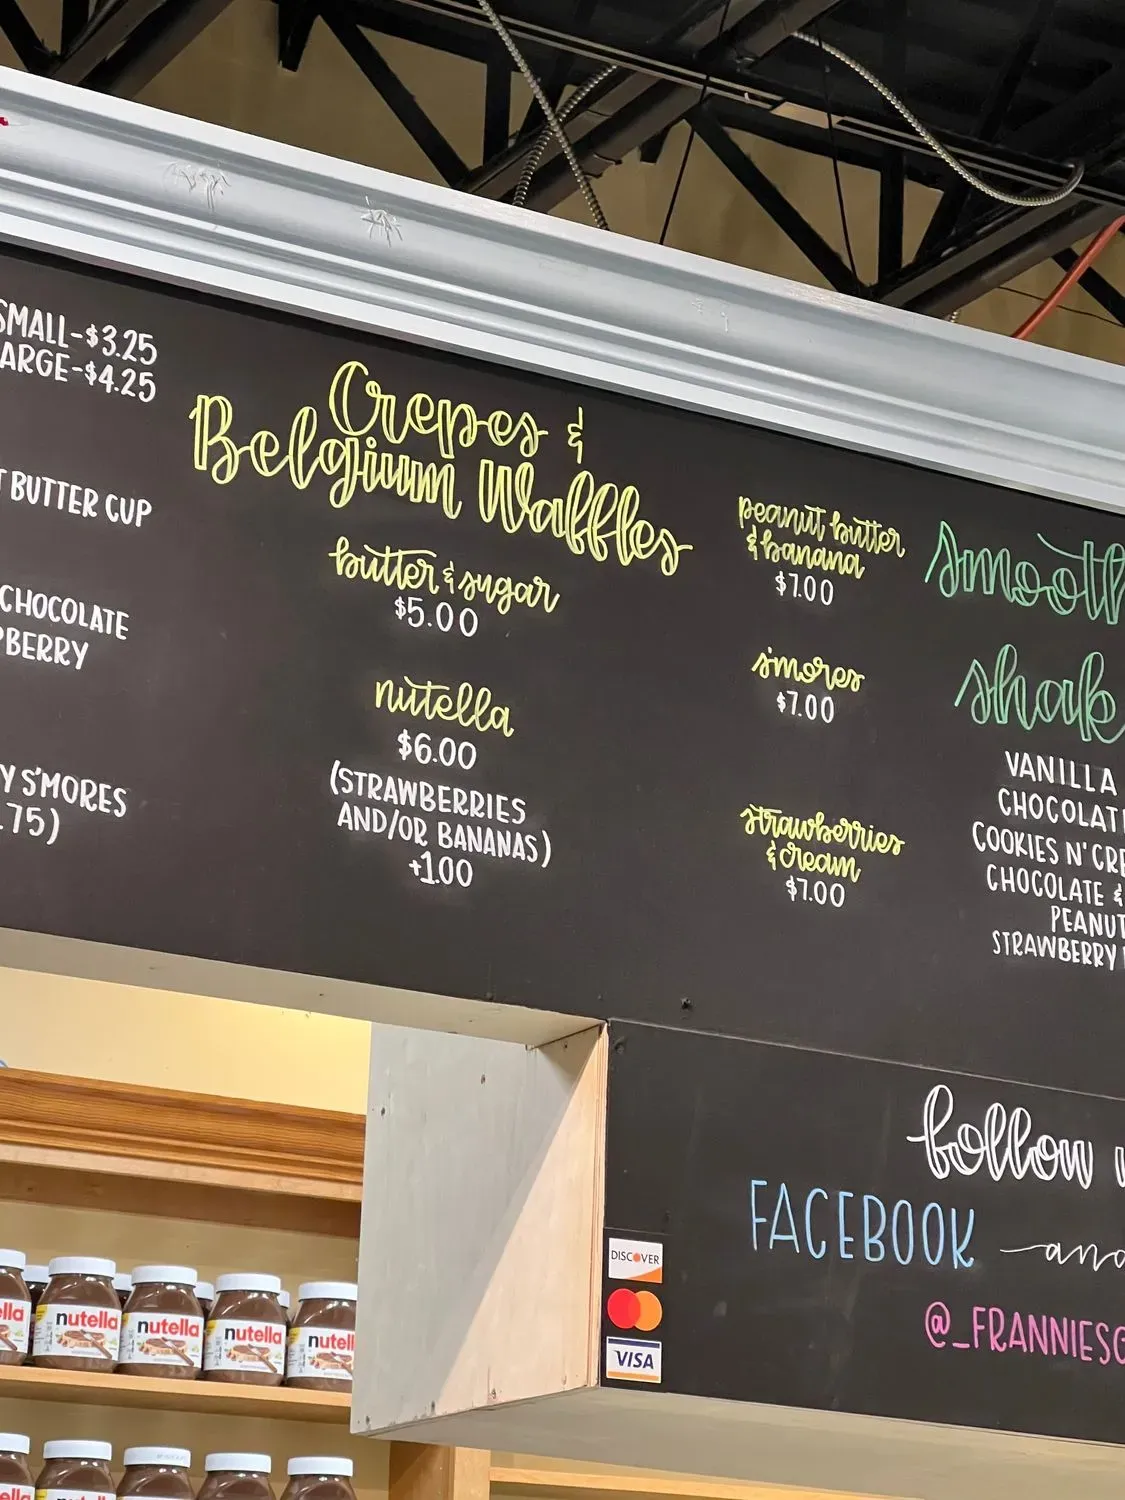 SMALL-$3.25
LARGE-$4.25
BUTTER CUP
CHOCOLATE
S'MORES
.75)
Crepes &
Belgium Waffles
butter & sugar
$5.00
nutella
$6.00
(STRAWBERRIES
AND/OR BANANAS)
+1.00
peanut butter
& banana
$7.00
s'mores
$7.00
strawberries
& cream
$7.00
VANILLA
COOKIES N'
CHOCOLATE &
PEANUT
STRAWBERRY
follow
FACEBOOK and
DISCOVER
VISA
nutella
nutella
nutella